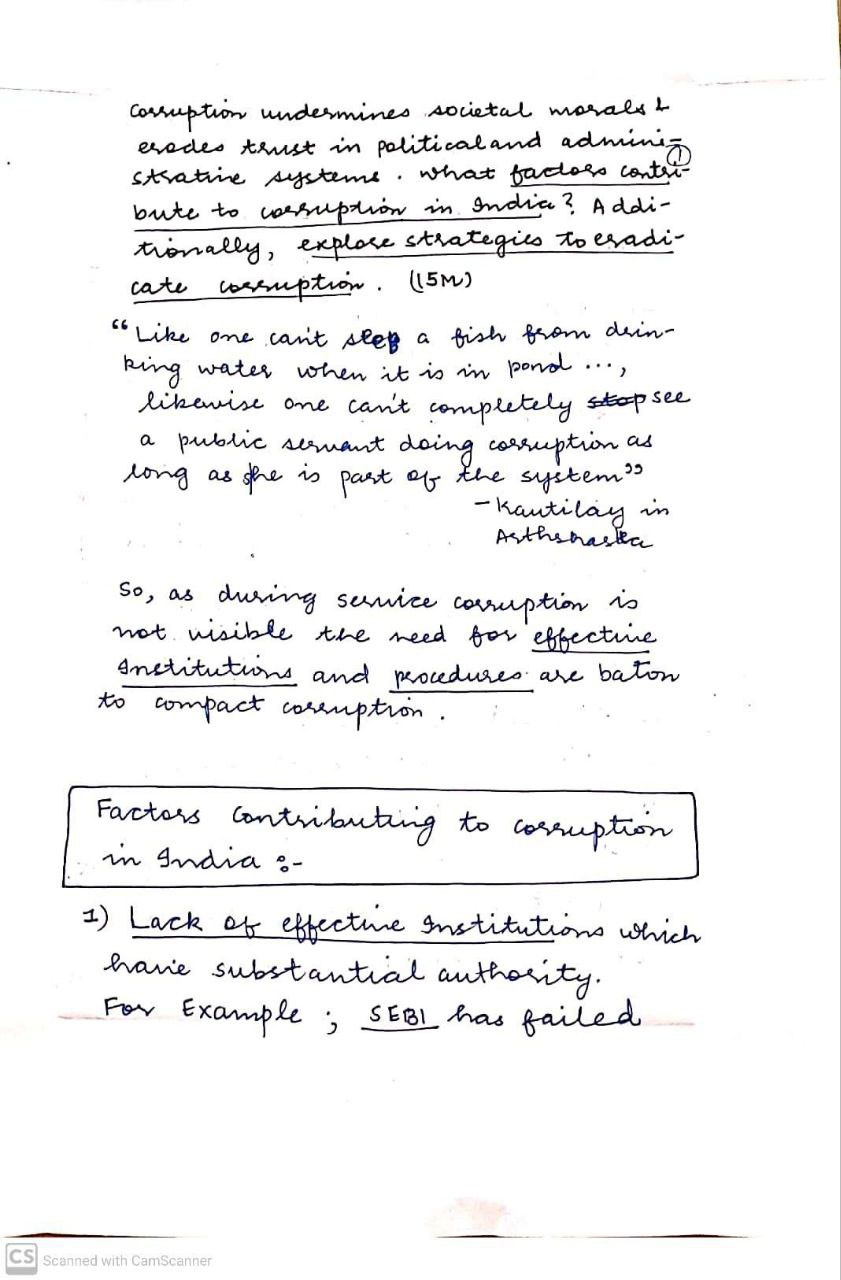 Corruption undermines societal morals &
erodes trust in political and admini-
strative systems. What factors contri-
①
bute to corruption in India? Addi-
tionally, explore strategies to eradi-
cate corruption. (15M)
"Like one can't a fish from drin-
king water when it is in pond ...,
likewise one can't completely stop see
a public servant doing corruption as
long as she is part of the system"
- Kautilay in
Arthshastra
So, as during service corruption is
not visible the need for effective
Institutions and procedures are baton
to compact corruption.
Factors Contributing to corruption
in India :-
1) Lack of effective Institutions which
have substantial authority.
For Example ; SEBI has failed
CS Scanned with CamScanner